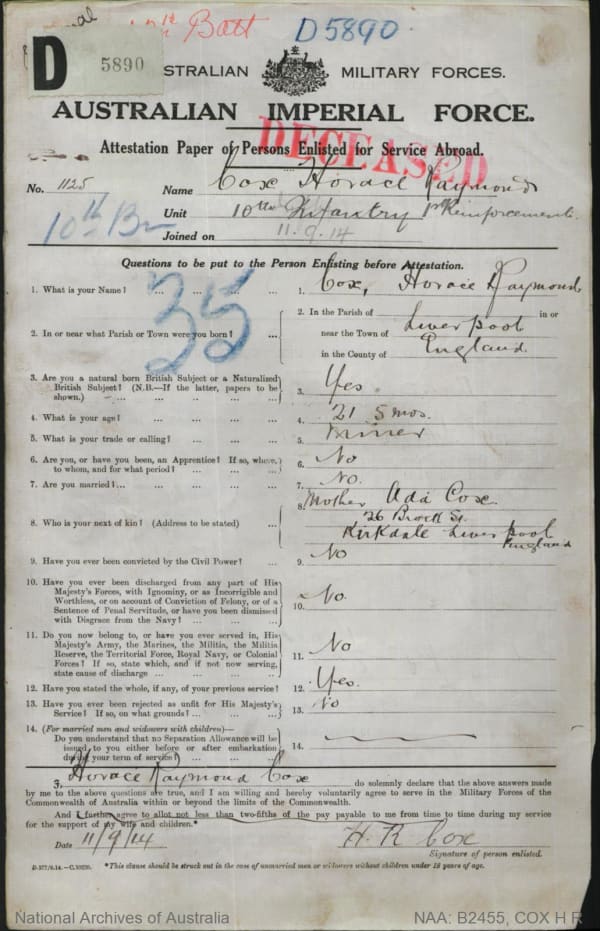 Batt
D5890
D
5890
AUSTRALIAN MILITARY FORCES.
AUSTRALIAN IMPERIAL FORCE.
DECEASED
Attestation Paper of Persons Enlisted for Service Abroad.
No. 1125 Name Cox Horace Raymond
Unit 10th Infantry 1st Reinforcements.
Joined on 11.9.14
10th Bn
35
Questions to be put to the Person Enlisting before Attestation.
1. What is your Name? ... ... ... ... 1. Cox, Horace Raymond
2. In or near what Parish or Town were you born? ...
2. In the Parish of in or
near the Town of Liverpool
in the County of England
3. Are you a natural born British Subject or a Naturalized
British Subject? (N.B.—If the latter, papers to be
shown.) 3. Yes
4. What is your age? ... ... ... ... 4. 21 5 mos.
5. What is your trade or calling? ... ... ... 5. Miner
6. Are you, or have you been, an Apprentice? If so, where,
to whom, and for what period? ... ... ... 6. No
7. Are you married? ... ... ... ... 7. No.
8. Who is your next of kin? (Address to be stated) ...
8. Mother Ada Cox
26 Brock St.
Kirkdale Liverpool
England
9. Have you ever been convicted by the Civil Power? ... 9. No
10. Have you ever been discharged from any part of His
Majesty's Forces, with Ignominy, or as Incorrigible and
Worthless, or on account of Conviction of Felony, or of a
Sentence of Penal Servitude, or have you been dismissed
with Disgrace from the Navy? ... ... ... 10. No.
11. Do you now belong to, or have you ever served in, His
Majesty's Army, the Marines, the Militia, the Militia
Reserve, the Territorial Force, Royal Navy, or Colonial
Forces? If so, state which, and if not now serving,
state cause of discharge ... ... ... ... 11. No
12. Have you stated the whole, if any, of your previous service? 12. Yes.
13. Have you ever been rejected as unfit for His Majesty's
Service? If so, on what grounds? ... ... ... 13. No
14. (For married men and widowers with children)—
Do you understand that no Separation Allowance will be
issued to you either before or after embarkation
during your term of service? 14.
I, Horace Raymond Cox do solemnly declare that the above answers made
by me to the above questions are true, and I am willing and hereby voluntarily agree to serve in the Military Forces of the
Commonwealth of Australia within or beyond the limits of the Commonwealth.
And I further agree to allot not less than two-fifths of the pay payable to me from time to time during my service
for the support of my wife and children.*
Date 11/9/14 H. R Cox
Signature of person enlisted.
*This clause should be struck out in the case of unmarried men or widowers without children under 18 years of age.
National Archives of Australia NAA: B2455, COX H R